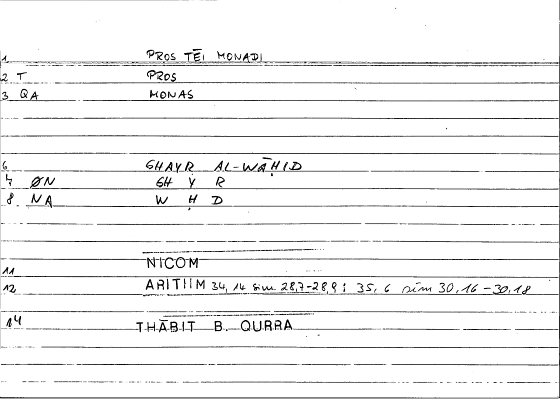 1 PROS TĒI MONADI
2 T PROS
3 QA MONAS
6 GHAYR AL-WĀḤID
7 ØN GH Y R
8 NA W Ḥ D
11 NICOM
12 ARITIIM 34, 14 sim 28,7-28,9; 35, 6 sim 30,16-30,18
14 THĀBIT B. QURRA